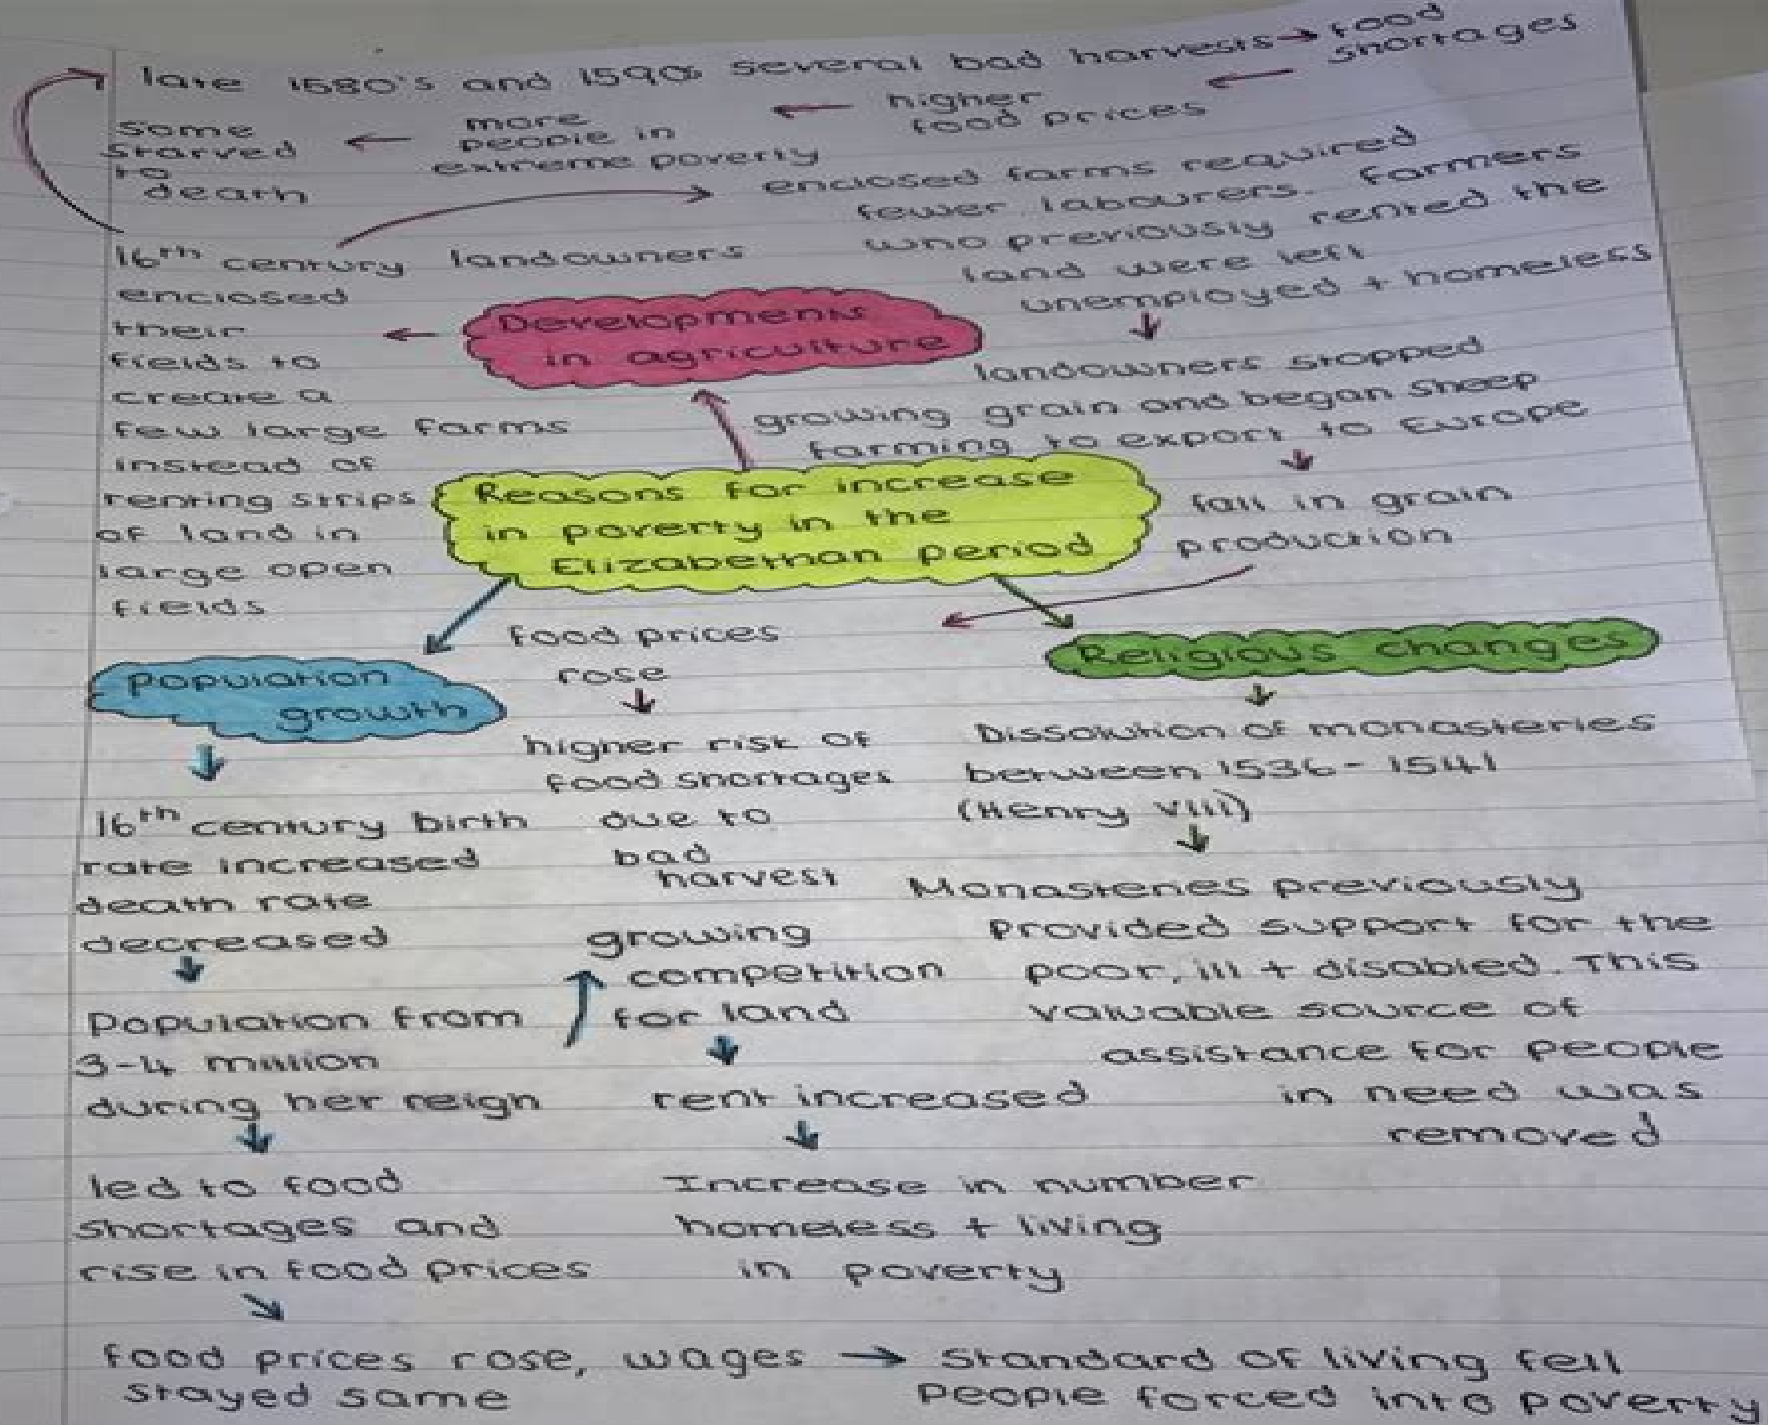 late 1580's and 1590s several bad harvests → food
shortages
← higher
food prices
← more
people in
extreme poverty
← some
starved
to
death
16th century landowners
enclosed
their
fields to
create a
few large farms
instead of
renting strips
of land in
large open
fields
enclosed farms required
fewer labourers. Farmers
who previously rented the
land were left
unemployed + homeless
↓
landowners stopped
growing grain and began sheep
farming to export to Europe
↓
fall in grain
production
Developments
in agriculture
Reasons for increase
in poverty in the
Elizabethan period
food prices
rose
↓
higher risk of
food shortages
due to
bad
harvest
Population
growth
↓
16th century birth
rate increased
death rate
decreased
↓
Population from
3-4 million
during her reign
↓
led to food
shortages and
rise in food prices
↘
food prices rose, wages → Standard of living fell
stayed same People forced into poverty
growing
competition
for land
↓
rent increased
↓
Increase in number
homeless + living
in poverty
Religious changes
↓
Dissolution of monasteries
between 1536-1541
(Henry VIII)
↓
Monasteries previously
Provided support for the
poor, ill + disabled. This
valuable source of
assistance for people
in need was
removed